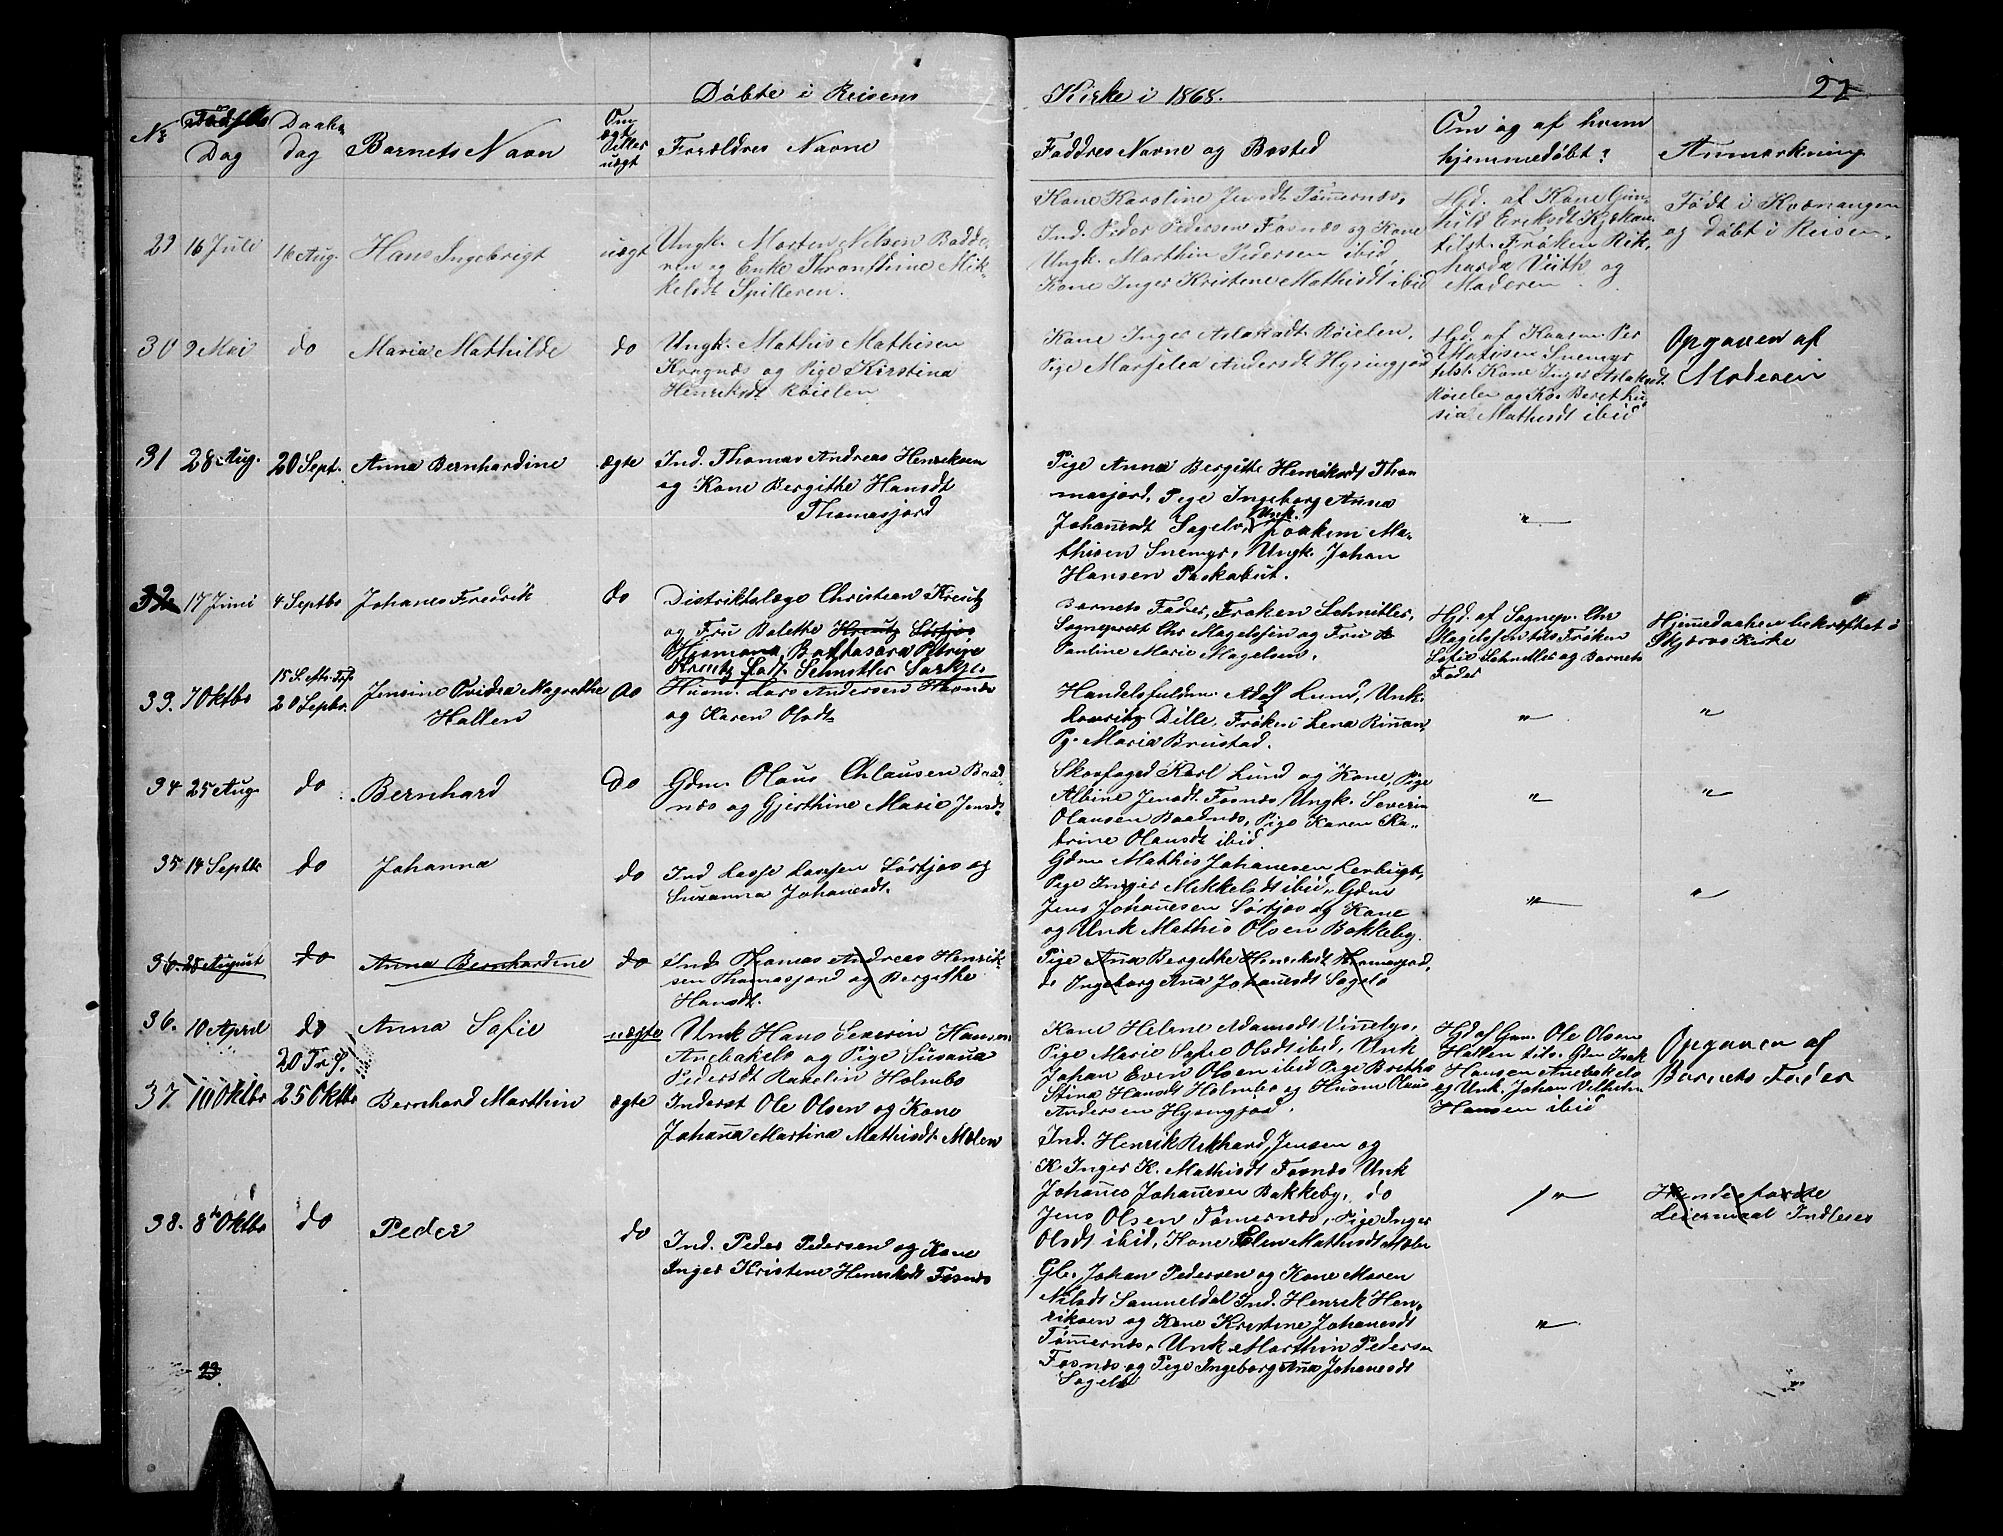 Døbte i Reisens Kirke i 1868.
22
No
Fødsels Dag
Daabs dag
Barnets Navn
Om ægte eller uægt
Forældres Navne
Faddres Navne og Bosted
Om og af hvem hjemmedøbt?
Anmærkning
29 16 Juli 16 Aug. Hans Ingebrigt uægt
Ungk. Morten Nilsen Badde-
ren og Enke Thronldine Mik-
kelsdt Spilleren.
Kone Karoline Jensdt Tömernæs,
Ind. Peder Pedersen Fosnæs og Kone
Ungk. Marthin Pedersen ibid,
Kone Inger Kristene Mathisdt ibid
Hjd. af Kone Gun-
hild Eriksdt Kjækan
tilst. Frøken Rik-
harda Vüth og
Moderen.
Født i Kvænangen
og døbt i Reisen.
30 9 Mai do Maria Mathilde do
Ungk. Mathis Mathisen
Kragnæs og Pige Kirstina
Henriksdt Røielen
Kone Inger Aslaksdt Røielen,
Pige Marselea Andersdt Hysingjord
Hjd. af Kaasen Per
Matisen Snemyr
tilst. Kone Inger Aslaksdt
Røielen og Ko. Bereth
Mathisdt ibid
Opgaven af
Moderen
31 28 Aug. 20 Sept. Anna Bernhardine ægte
Ind. Thomas Andreas Henriksen
og Kone Bergithe Hansdt
Thomasjord
Pige Anna Bergitte Henriksdt Tho-
masjord, Pige Ingeborg Anna
Johanesdt Sagelv, Unk. Joakim Ma-
thisen Snemyr, Ungk. Johan
Hansen Paskabut.
"
32 17 Juni 4 Septbr Johanes Fredrik do
Distriktslæge Christian Kreutz
og Fru Bolette Kreutz Sørkjos
Hiemona Baltasara Petrine
Kreutz født Schnitler Sørkjos
Barnets Fader, Frøken Schnitler,
Sogneprest Chr Magelssen og Fru
Pauline Marie Magelsen.
Hjd. af Sognep. Chr
Magelssen tils Frøken
Sofie Schnitler og Barnets
Fader
Hjemedaaben bekræftet i
Skjervø Kirke
33. 7 Oktbr 15 S. efter Tref. 20 Septbr. Jensine Ovidia Magrethe do
Hallen
Husm. Lars Andersen
og Karen Olsdt
Handelsfuldm. Adolf Lund, Unk.
Lauritz Dille, Frøken Lena Rinan,
Pg. Maria Brustad.
" "
34 25 Aug. do Bernhard do
Gdm. Olaus Chlausen Baad-
næs og Gjerthine Marie Jensdt
Skovfoged Karl Lund og Kone, Pige
Albine Jensdt Fosnæs, Ungk. Severin
Olausen Baadnæs, Pige Karen Ka-
trine Olausdt ibid.
" "
35 14 Septbr do Johanna do
Ind Lasse Larssen Sørkjos og
Susanna Johanesdt.
Gdm Mathis Johanesen Lenbugt,
Pige Inger Mikkelsdt ibid, Gdm
Jens Johanesen Sørkjos og Kone
og Unk Mathis Olsen Bakkeby.
" "
36. 28 August do Anna Bernhardine do
Ind Thomas Andreas Henrik-
sen Thomasjord og Bergithe
Hansdt.
Pige Ana Bergitte Henriksdt Thomasjord,
do Ingeborg Ana Johanesdt Sagelv
36. 10 April do Anna Sofie uægte
Unk Hans Severin Hansen
Anebakels og Pige Susana
Pedersdt Ravelin Holmbo
Kone Helene Adamsdt Vinelys,
Pige Marie Sofie Olsdt ibid, Unk
Johan Even Olsen ibid Pige Bretha
Stina Hansdt Holmbo og Husm Olaus
Andersen Hysingjord.
Hjd af Gm. Ole Olsen
Hallen tils. Gdm Isak
Hansen Anebakels
og Unk. Johan Vilhelm
Hansen ibid
Opgaven af
Barnets Fader
20 Tr. S.
37 10 Oktbr 25 Oktbr Bernhard Marthin ægte
Inderst Ole Olsen og Kone
Johana Martina Mathisdt Molen
Ind. Henrik Rikhard Jensen og
K. Inger K. Mathisdt Fosnæs Unk
Johanes Johanesen Bakkeby, do
Jens Olsen Tömernæs, Pige Inger
Olsdt ibid, Kone Elen Mathisdt Molen
"
38. 8de Oktbr do Peder do
Ind. Peder Pedersen og Kone
Inger Kristene Henriksdt Fosnæs
Gb. Johan Pedersen og Kone Maren
Nilsdt Sammeldal Ind. Henrik Hen-
riksen og Kone Kristine Johanesdt
Tömernæs, Unk Marthin Pedersen
Fosnæs og Pige Ingeborg Ana Johanesdt
Sagelv
"
Leiermaal Indleses
23.